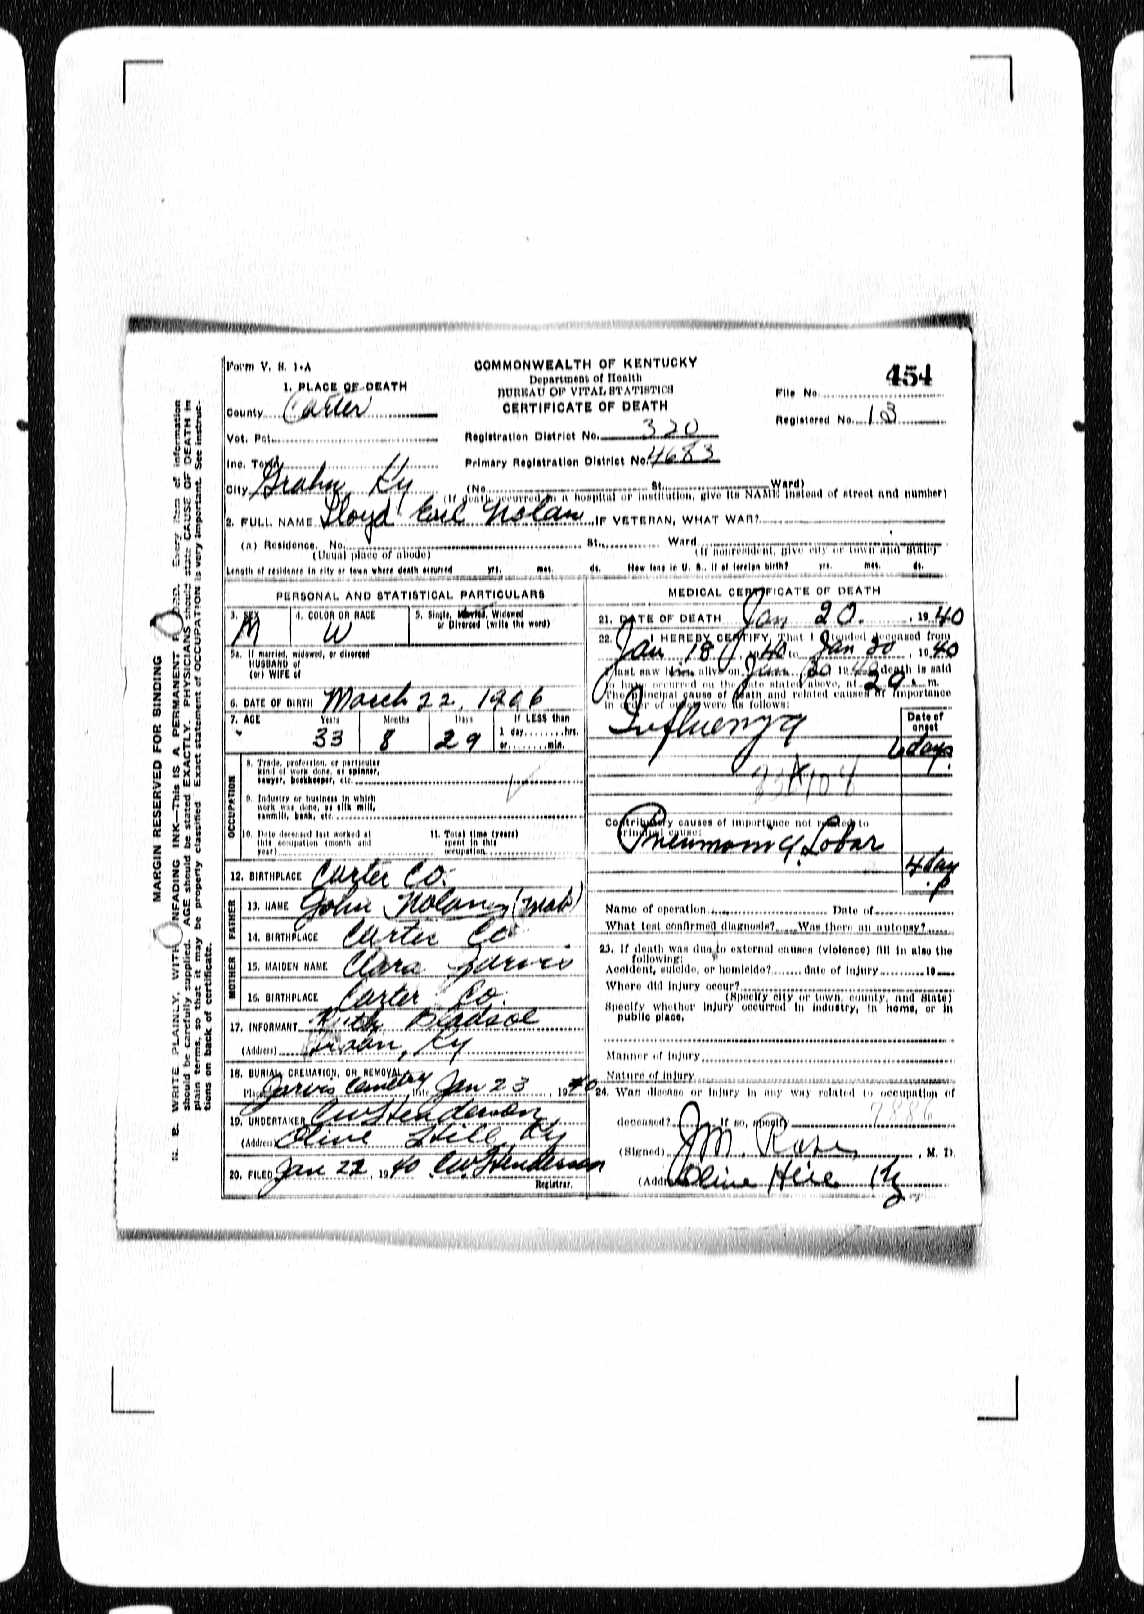 Form V. S. 1-A
COMMONWEALTH OF KENTUCKY
Department of Health
BUREAU OF VITAL STATISTICS
CERTIFICATE OF DEATH
454
File No.
Registered No. 13
1. PLACE OF DEATH
County Carter
Vot. Pct.
Registration District No. 320
Inc. Town
Primary Registration District No. 4683
City Grahn, Ky (No. St. Ward)
(If death occurred in a hospital or institution, give its NAME instead of street and number)
2. FULL NAME Lloyd Earl Nolan IF VETERAN, WHAT WAR?
(a) Residence. No. St. Ward
(Usual place of abode) (If nonresident, give city or town and State)
Length of residence in city or town where death occurred yrs. mos. ds. How long in U. S., if of foreign birth? yrs. mos. ds.
PERSONAL AND STATISTICAL PARTICULARS
3. SEX M
4. COLOR OR RACE W
5. Single, Married, Widowed or Divorced (write the word)
5a. If married, widowed, or divorced
HUSBAND of
(or) WIFE of
6. DATE OF BIRTH March 22, 1906
7. AGE Years 33 Months 8 Days 29 If LESS than 1 day hrs. or min.
OCCUPATION
8. Trade, profession, or particular
kind of work done, as spinner,
sawyer, bookkeeper, etc.
9. Industry or business in which
work was done, as silk mill,
sawmill, bank, etc.
10. Date deceased last worked at
this occupation (month and
year)
11. Total time (years)
spent in this
occupation
12. BIRTHPLACE Carter Co.
FATHER
13. NAME John Nolan
14. BIRTHPLACE Carter Co
MOTHER
15. MAIDEN NAME Clara Jarvis
16. BIRTHPLACE Carter Co.
17. INFORMANT Bledsoe
(Address) Grahn, Ky
18. BURIAL, CREMATION, OR REMOVAL
Place Jarvis Cemetry Date Jan 23, 1940
19. UNDERTAKER C W Henderson
(Address) Olive Hill Ky
20. FILED Jan 22, 1940 C.W. Henderson
Registrar.
MEDICAL CERTIFICATE OF DEATH
21. DATE OF DEATH Jan 20, 1940
22. I HEREBY CERTIFY, That I attended deceased from
Jan 18, 1940 to Jan 20, 1940
I last saw him alive on Jan 20 1940 death is said
to have occurred on the date stated above, at 29 m.
The principal cause of death and related causes of importance
in order of onset were as follows:
Date of onset
Influenza
6 days
Contributory causes of importance not related to
principal cause:
Pneumonia, Lobar
4 days
Name of operation Date of
What test confirmed diagnosis? Was there an autopsy?
23. If death was due to external causes (violence) fill in also the
following:
Accident, suicide, or homicide? date of injury 19
Where did injury occur?
(Specify city or town, county, and State)
Specify whether injury occurred in industry, in home, or in
public place,
Manner of injury
Nature of injury
24. Was disease or injury in any way related to occupation of
7886
deceased? If so, specify
(Signed) J M. Rose, M. D.
(Address) Olive Hill Ky
MARGIN RESERVED FOR BINDING
N. B. WRITE PLAINLY, WITH UNFADING INK—THIS IS A PERMANENT RECORD. Every item of information
should be carefully supplied. AGE should be stated EXACTLY. PHYSICIANS should state CAUSE OF DEATH in
plain terms, so that it may be properly classified. Exact statement of OCCUPATION is very important. See instruc-
tions on back of certificate.